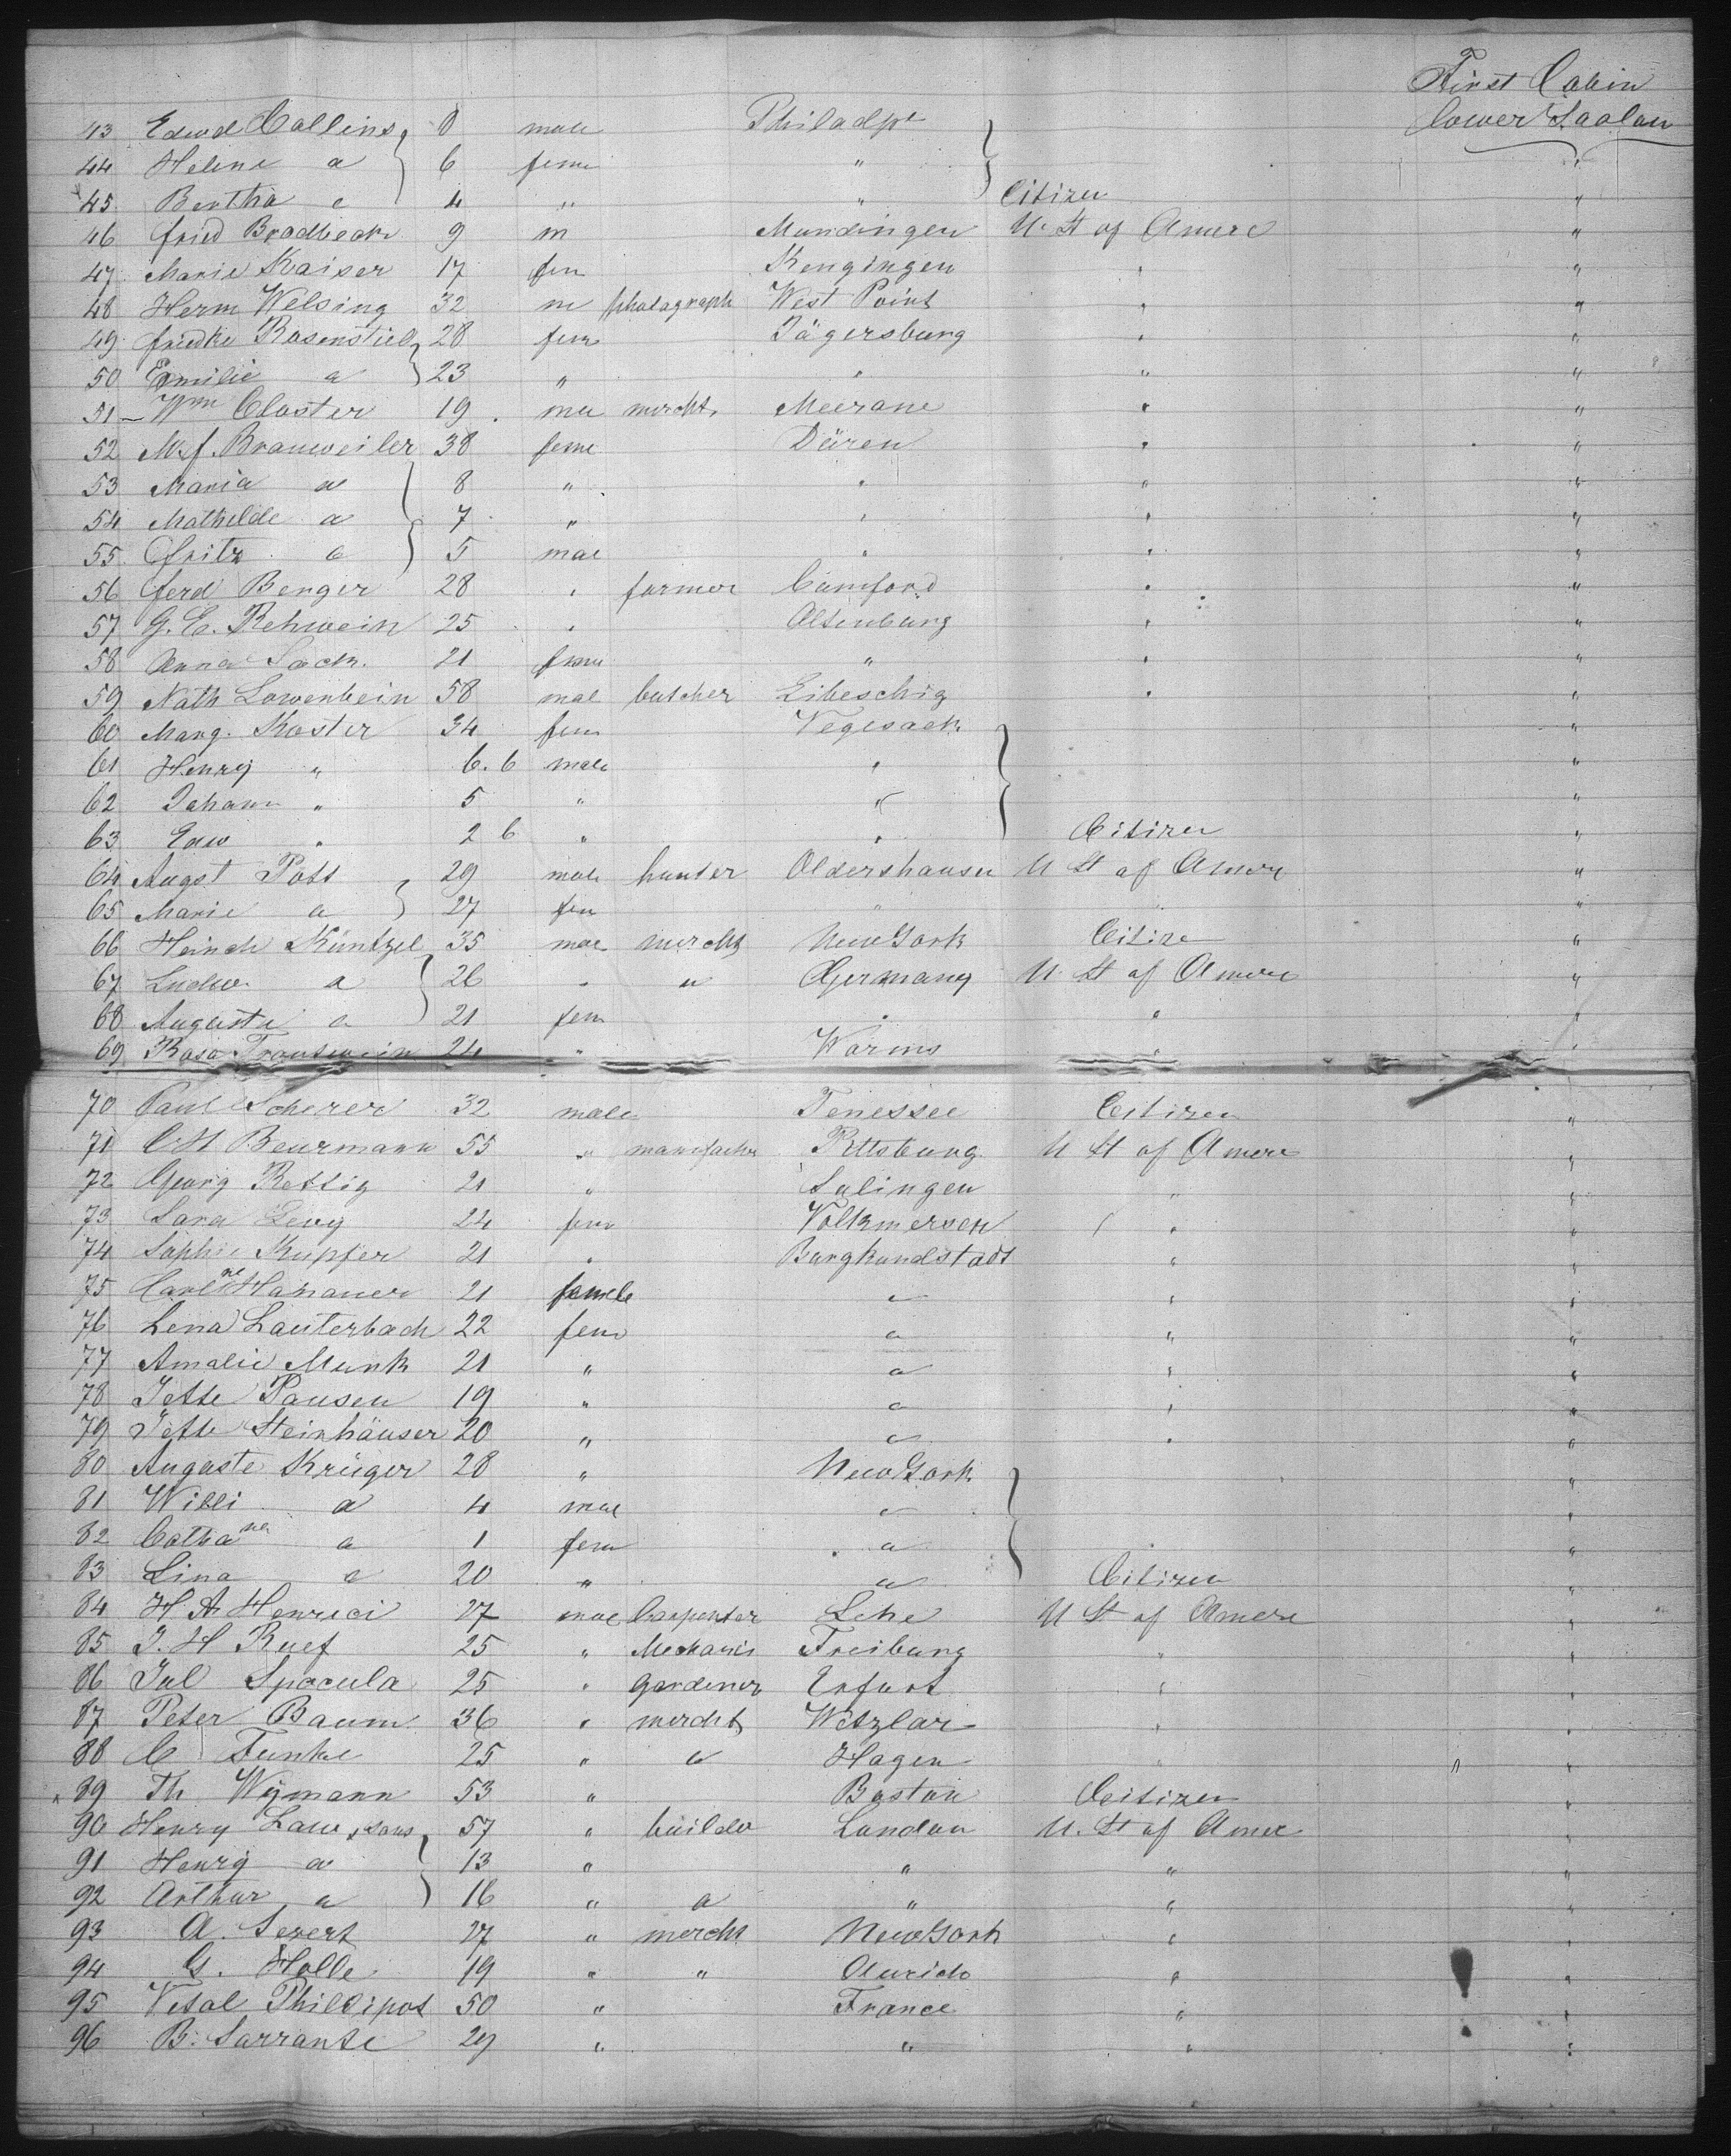 First Cabin
lower Saolon
43 Edwd Collins 8 male Philadpa
44 Helene " 6 feme "
45 Bertha " 4 " " Citizen
46 fried Bradbeck 9 m Mundingen U. St of Amere "
47 Marie Kaiser 17 fem Kengingen " "
48 Herm Welsing 32 m photagraph West Point " "
49 friedke Rosenstiel 28 fem Jägersburg " "
50 Emilie " 23 " " " "
51 Wm Claster 19 male mercht. Meerane " "
52 M. f. Brauweiler 38 feme Düren " "
53 Maria " 8 " " " "
54 Mathilde " 7 " " " "
55 fritz " 5 mal " " "
56 ferd Benger 28 " farmer Camford " "
57 G. E. Rehwein 25 " Altenburg " "
58 Anna Sack. 21 feme " " "
59 Nath Lowenbein 58 mal butcher Libeschig " "
60 Marg. Koster 34 fem Vegesack "
61 Henry " 6. 6 male " "
62 Johann " 5 " " "
63 " 2 6 " " Citizen "
64 Augst Pott 29 male hunter Oldershausen U St of Amere "
65 Marie " 27 fem " " "
66 Heinch Küntzel 35 male mercht New York Citizen "
67 Ludw. " 26 " " Germany U. St of Amere "
68 Augusta " 21 fem " " "
69 Rosa Trautwein 24 " Warms " "
70 Paul Scherer 32 male Tenessee Citizen "
71 Beurmann 55 " manufactr Pittsburg U St of Amere "
72 Georg Rettig 21 " Salingen " "
73 Sara Levy 24 fem Volkmersen " "
74 Sophie Kupfer 21 " Burgkundstadt " "
75 Carlne Hamauer 21 famele " " "
76 Lena Lauterbach 22 fem " " "
77 Amalie Munk 21 " " " "
78 Jette Pausen 19 " " " "
79 Jette Steinhäuser 20 " " " "
80 Auguste Krüger 28 " New York "
81 Willi " 4 mal " "
82 Cathane " 1 fem " "
83 Lina " 20 " " Citizen "
84 H A Henrici 27 male Carpenter Lehe U St of Amere "
85 J. H Ruef 25 " Mechanic Freiburg " "
86 Jul Spacula 25 " gardener Erfurt " "
87 Peter Baum 36 " mercht Wetzlar " "
88 C Funke 25 " " Hagen " " "
89 Th Wymann 53 " Bostan Citizen "
90 Henry Law, sons 57 " builder Landan U. St of Amer "
91 Henry " 13 " " " "
92 Arthur " 16 " " " " "
93 A. Severt 27 " mercht New York " "
94 G. Holle 19 " " Aurich " "
95 Vital Phillipot 50 " France " "
96 B. Sarrante 29 " " " "